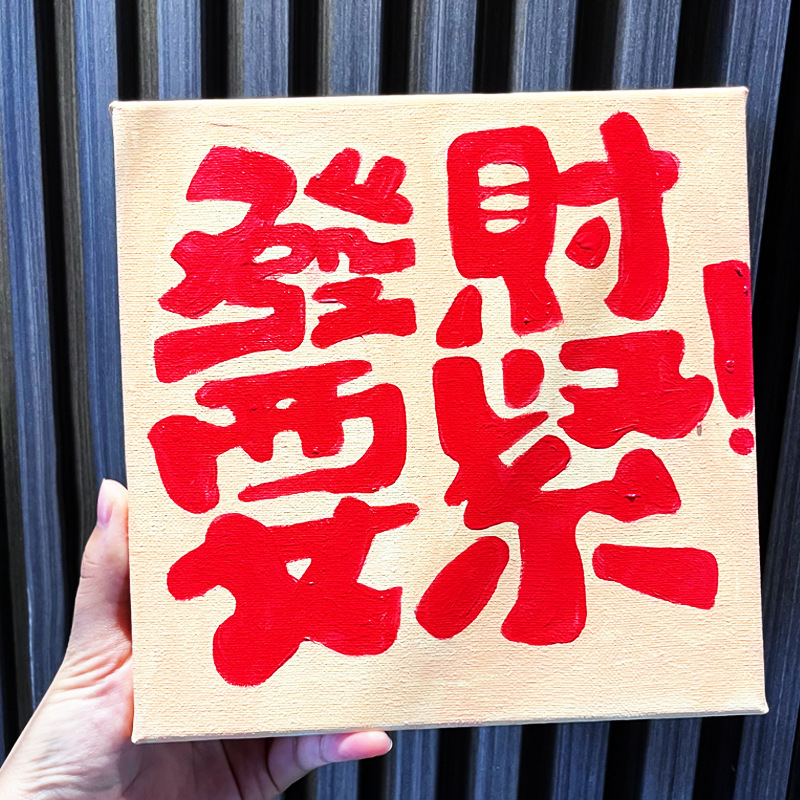 發財
要緊!